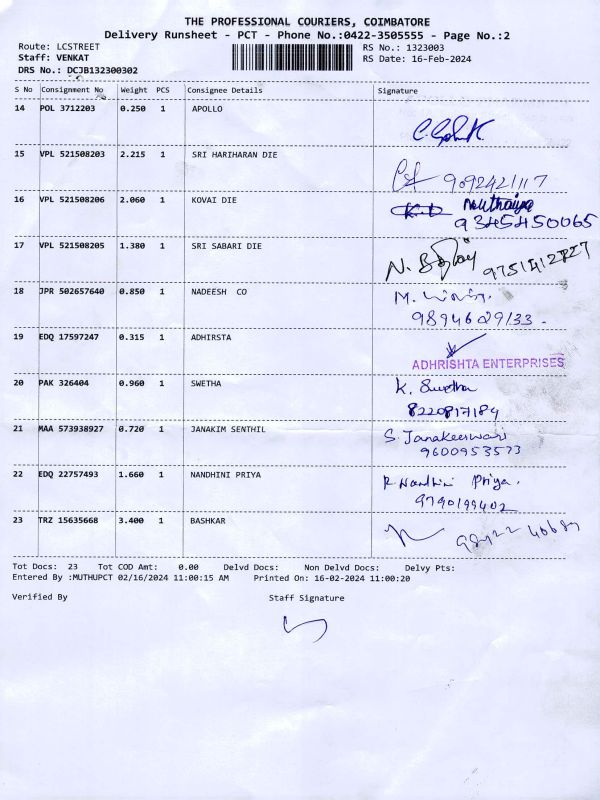 THE PROFESSIONAL COURIERS, COIMBATORE
Delivery Runsheet - PCT - Phone No.:0422-3505555 - Page No.:2
Route: LCSTREET RS No.: 1323003
Staff: VENKAT RS Date: 16-Feb-2024
DRS No.: DCJB132300302
S No Consignment No Weight PCS Consignee Details Signature
14 POL 3712203 0.250 1 APOLLO
15 VPL 521508203 2.215 1 SRI HARIHARAN DIE
9092421117
16 VPL 521508206 2.060 1 KOVAI DIE
9345450065
17 VPL 521508205 1.380 1 SRI SABARI DIE
N.
18 JPR 502657640 0.850 1 NADEESH CO
M.
9894629133.
19 EDQ 17597247 0.315 1 ADHIRSTA
ADHRISHTA ENTERPRISES
20 PAK 326404 0.960 1 SWETHA K. Swetha
8220817184
21 MAA 573938927 0.720 1 JANAKIM SENTHIL S. Janakeeswari
9600953573
22 EDQ 22757493 1.660 1 NANDHINI PRIYA R. Nandhini Priya.
9790199402
23 TRZ 15635668 3.400 1 BASHKAR
Tot Docs: 23 Tot COD Amt: 0.00 Delvd Docs: Non Delvd Docs: Delvy Pts:
Entered By :MUTHUPCT 02/16/2024 11:00:15 AM Printed On: 16-02-2024 11:00:20
Verified By Staff Signature